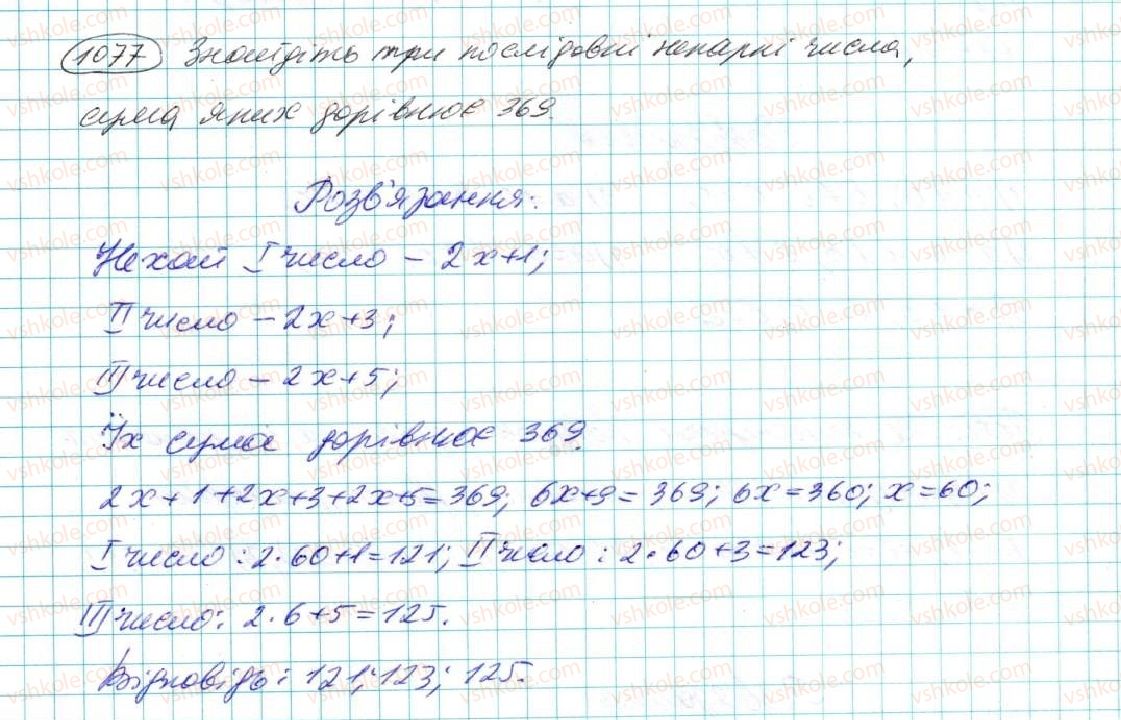 1077 Знайдіть три послідовні непарні числа,
сума яких дорівнює 369.
Розв'язання:
Нехай I число – 2x+1;
II число – 2x+3;
III число – 2x+5;
Їх сума дорівнює 369.
2x+1+2x+3+2x+5=369; 6x+9=369; 6x=360; x=60;
I число: 2·60+1=121; II число: 2·60+3=123;
III число: 2·6+5=125.
Відповідь: 121; 123; 125.